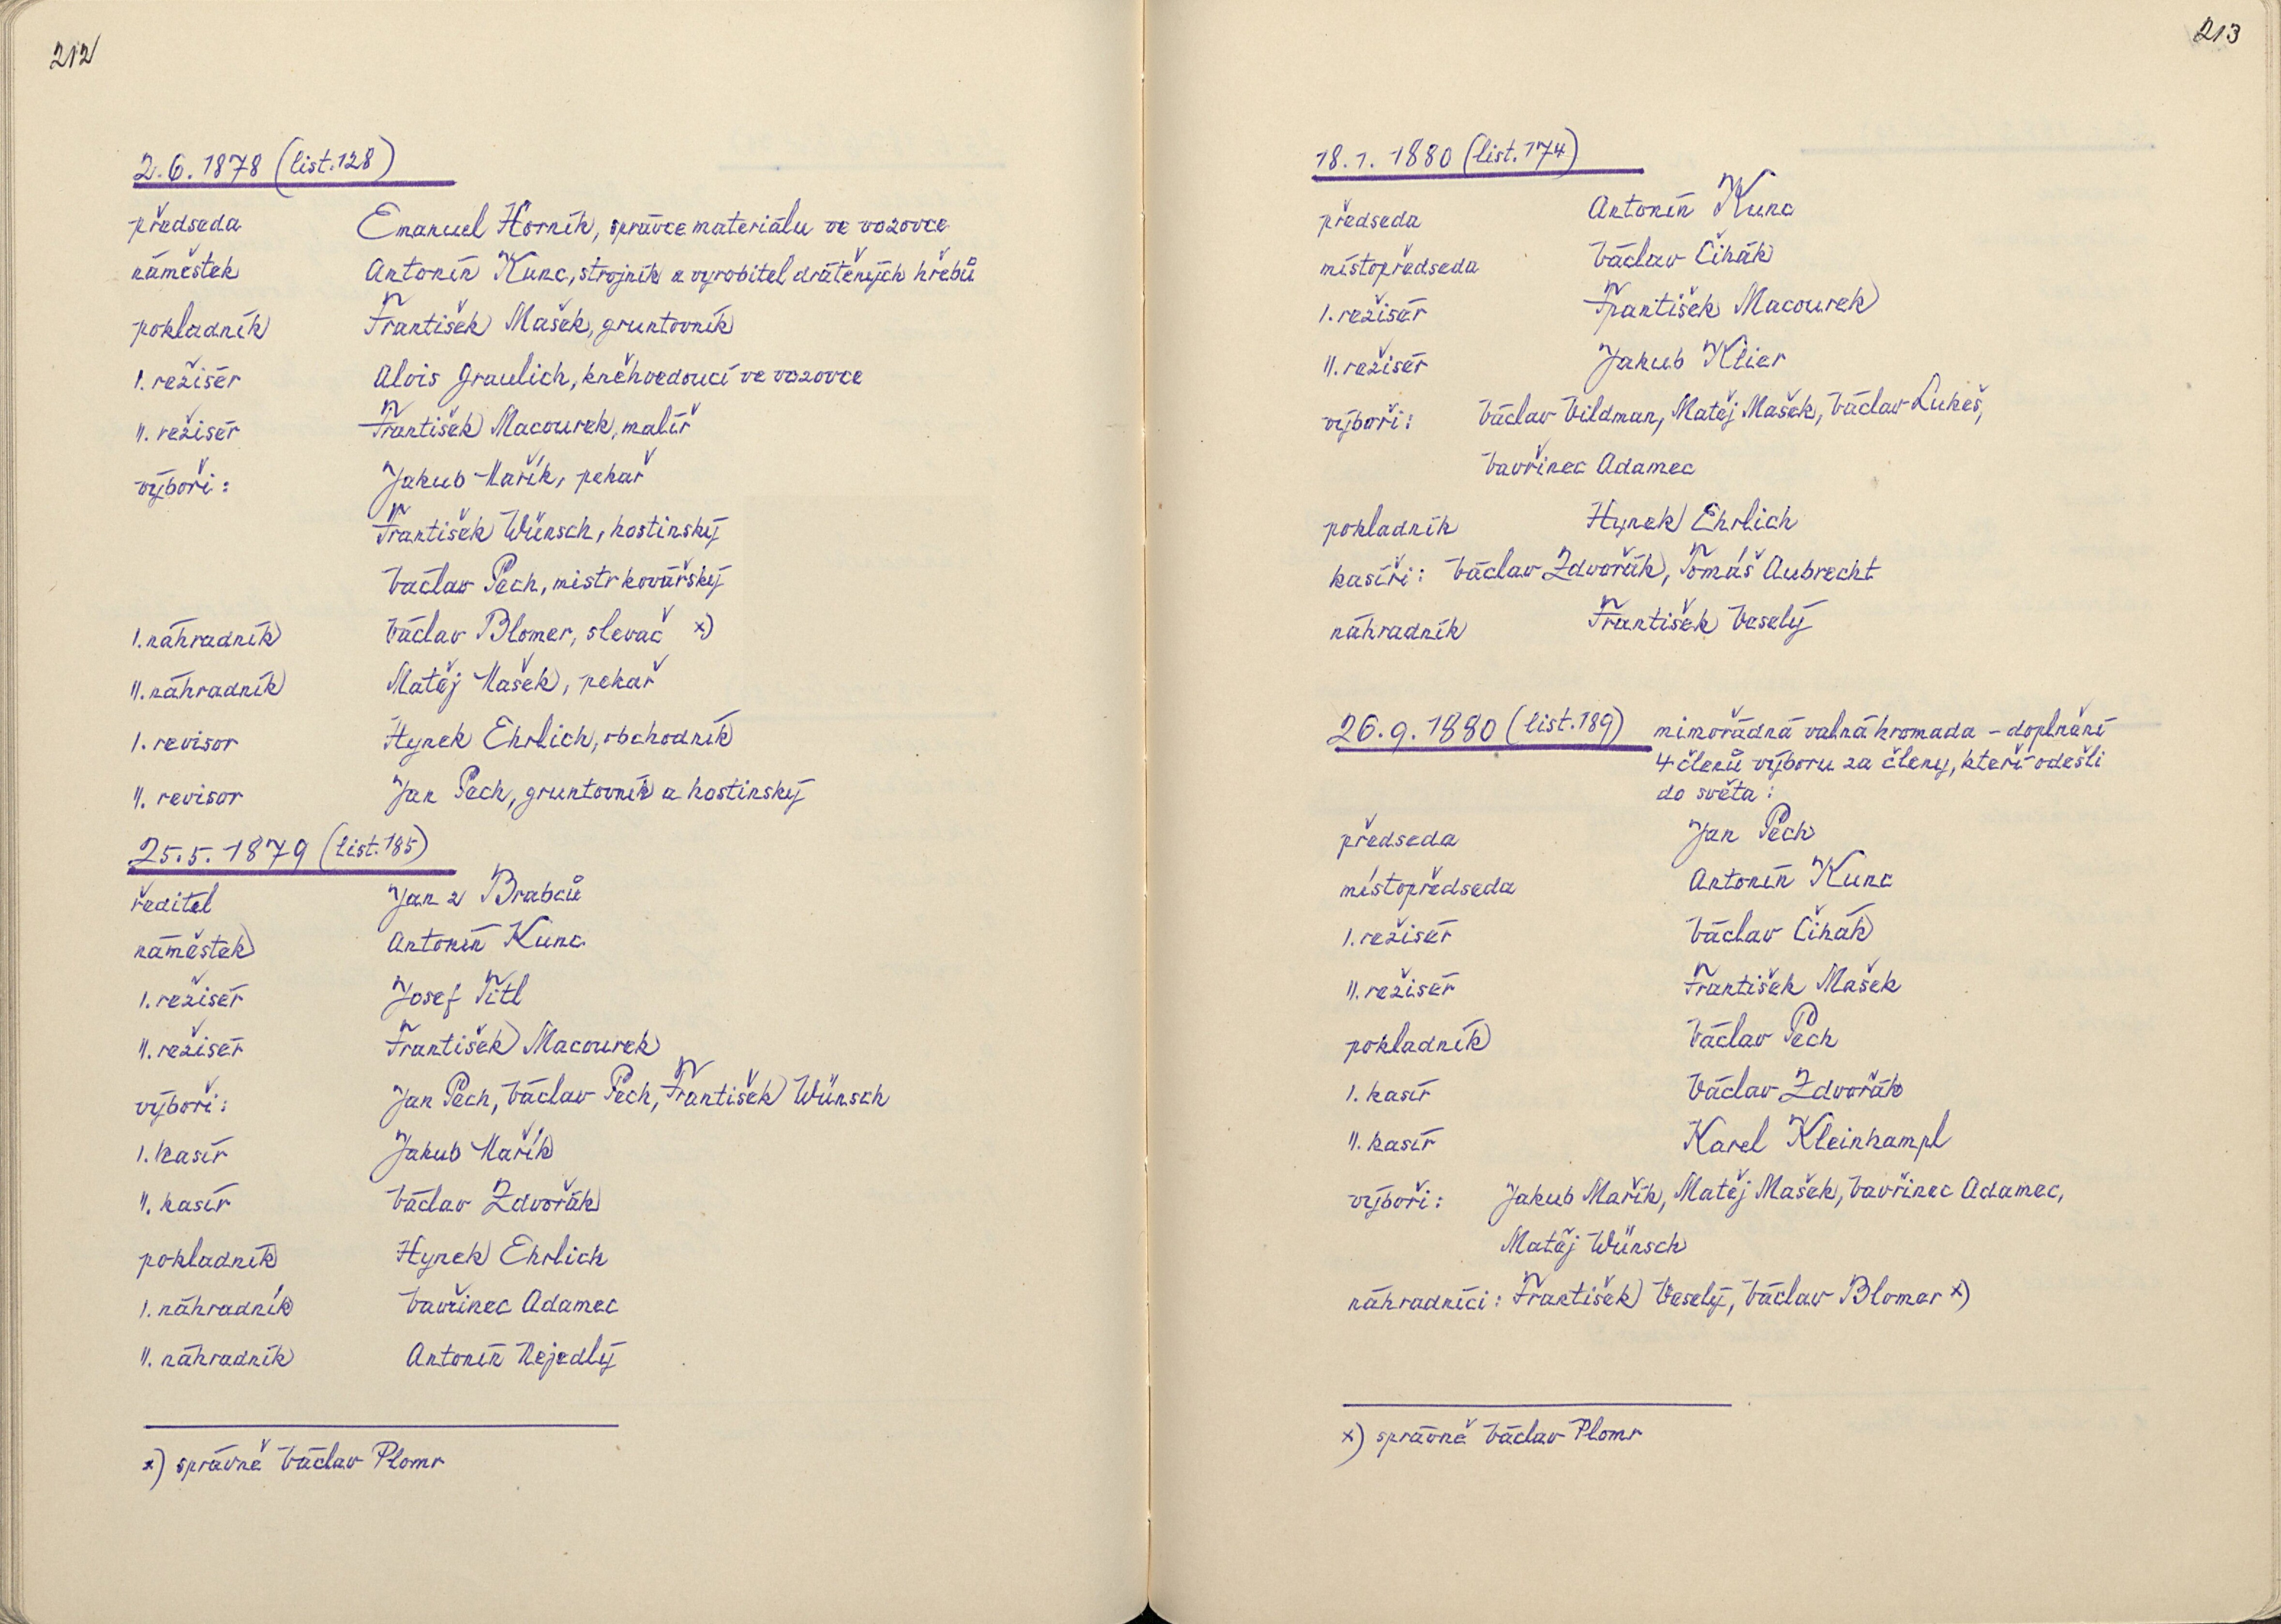 212
2.6.1878 (list.128)
předseda Emanuel Horník, správce materiálu ve vozovce
náměstek Antonín Kunc, strojník a vyrobitel drátěných hřebů
pokladník František Mašek, gruntovník
I. režisér Alois Graulich, kněhvedoucí ve vozovce
II. režisér František Macourek, malíř
výboři: Jakub Mařík, pekař
František Wünsch, hostinský
Václav Pech, mistr kovářský
I. náhradník Václav Blomer, slevač x)
II. náhradník Matěj Mašek, pekař
I. revisor Hynek Ehrlich, obchodník
II. revisor Jan Pech, gruntovník a hostinský
25.5.1879 (list.185)
ředitel Jan z Brabců
náměstek Antonín Kunc
I. režisér Josef Titl
II. režisér František Macourek
výboři: Jan Pech, Václav Pech, František Wünsch
I. kasír Jakub Mařík
II. kasír Václav Zdvořák
pokladník Hynek Ehrlich
I. náhradník Vavřinec Adamec
II. náhradník Antonín Nejedlý
x) správně Václav Plomr
213
18.1.1880 (list.174)
předseda Antonín Kunc
místopředseda Václav Čihák
I. režisér František Macourek
II. režisér Jakub Klier
výboři: Václav Vildman, Matěj Mašek, Václav Lukeš,
Vavřinec Adamec
pokladník Hynek Ehrlich
kasíři: Václav Zdvořák, Tomáš Aubrecht
náhradník František Veselý
26.9.1880 (list.189) mimořádná valná hromada – doplnění
4 členů výboru za členy, kteří odešli
do světa:
předseda Jan Pech
místopředseda Antonín Kunc
I. režisér Václav Čihák
II. režisér František Mašek
pokladník Václav Pech
I. kasír Václav Zdvořák
II. kasír Karel Kleinhampl
výboři: Jakub Mařík, Matěj Mašek, Vavřinec Adamec,
Matěj Wünsch
náhradníci: František Veselý, Václav Blomer x)
x) správně Václav Plomr